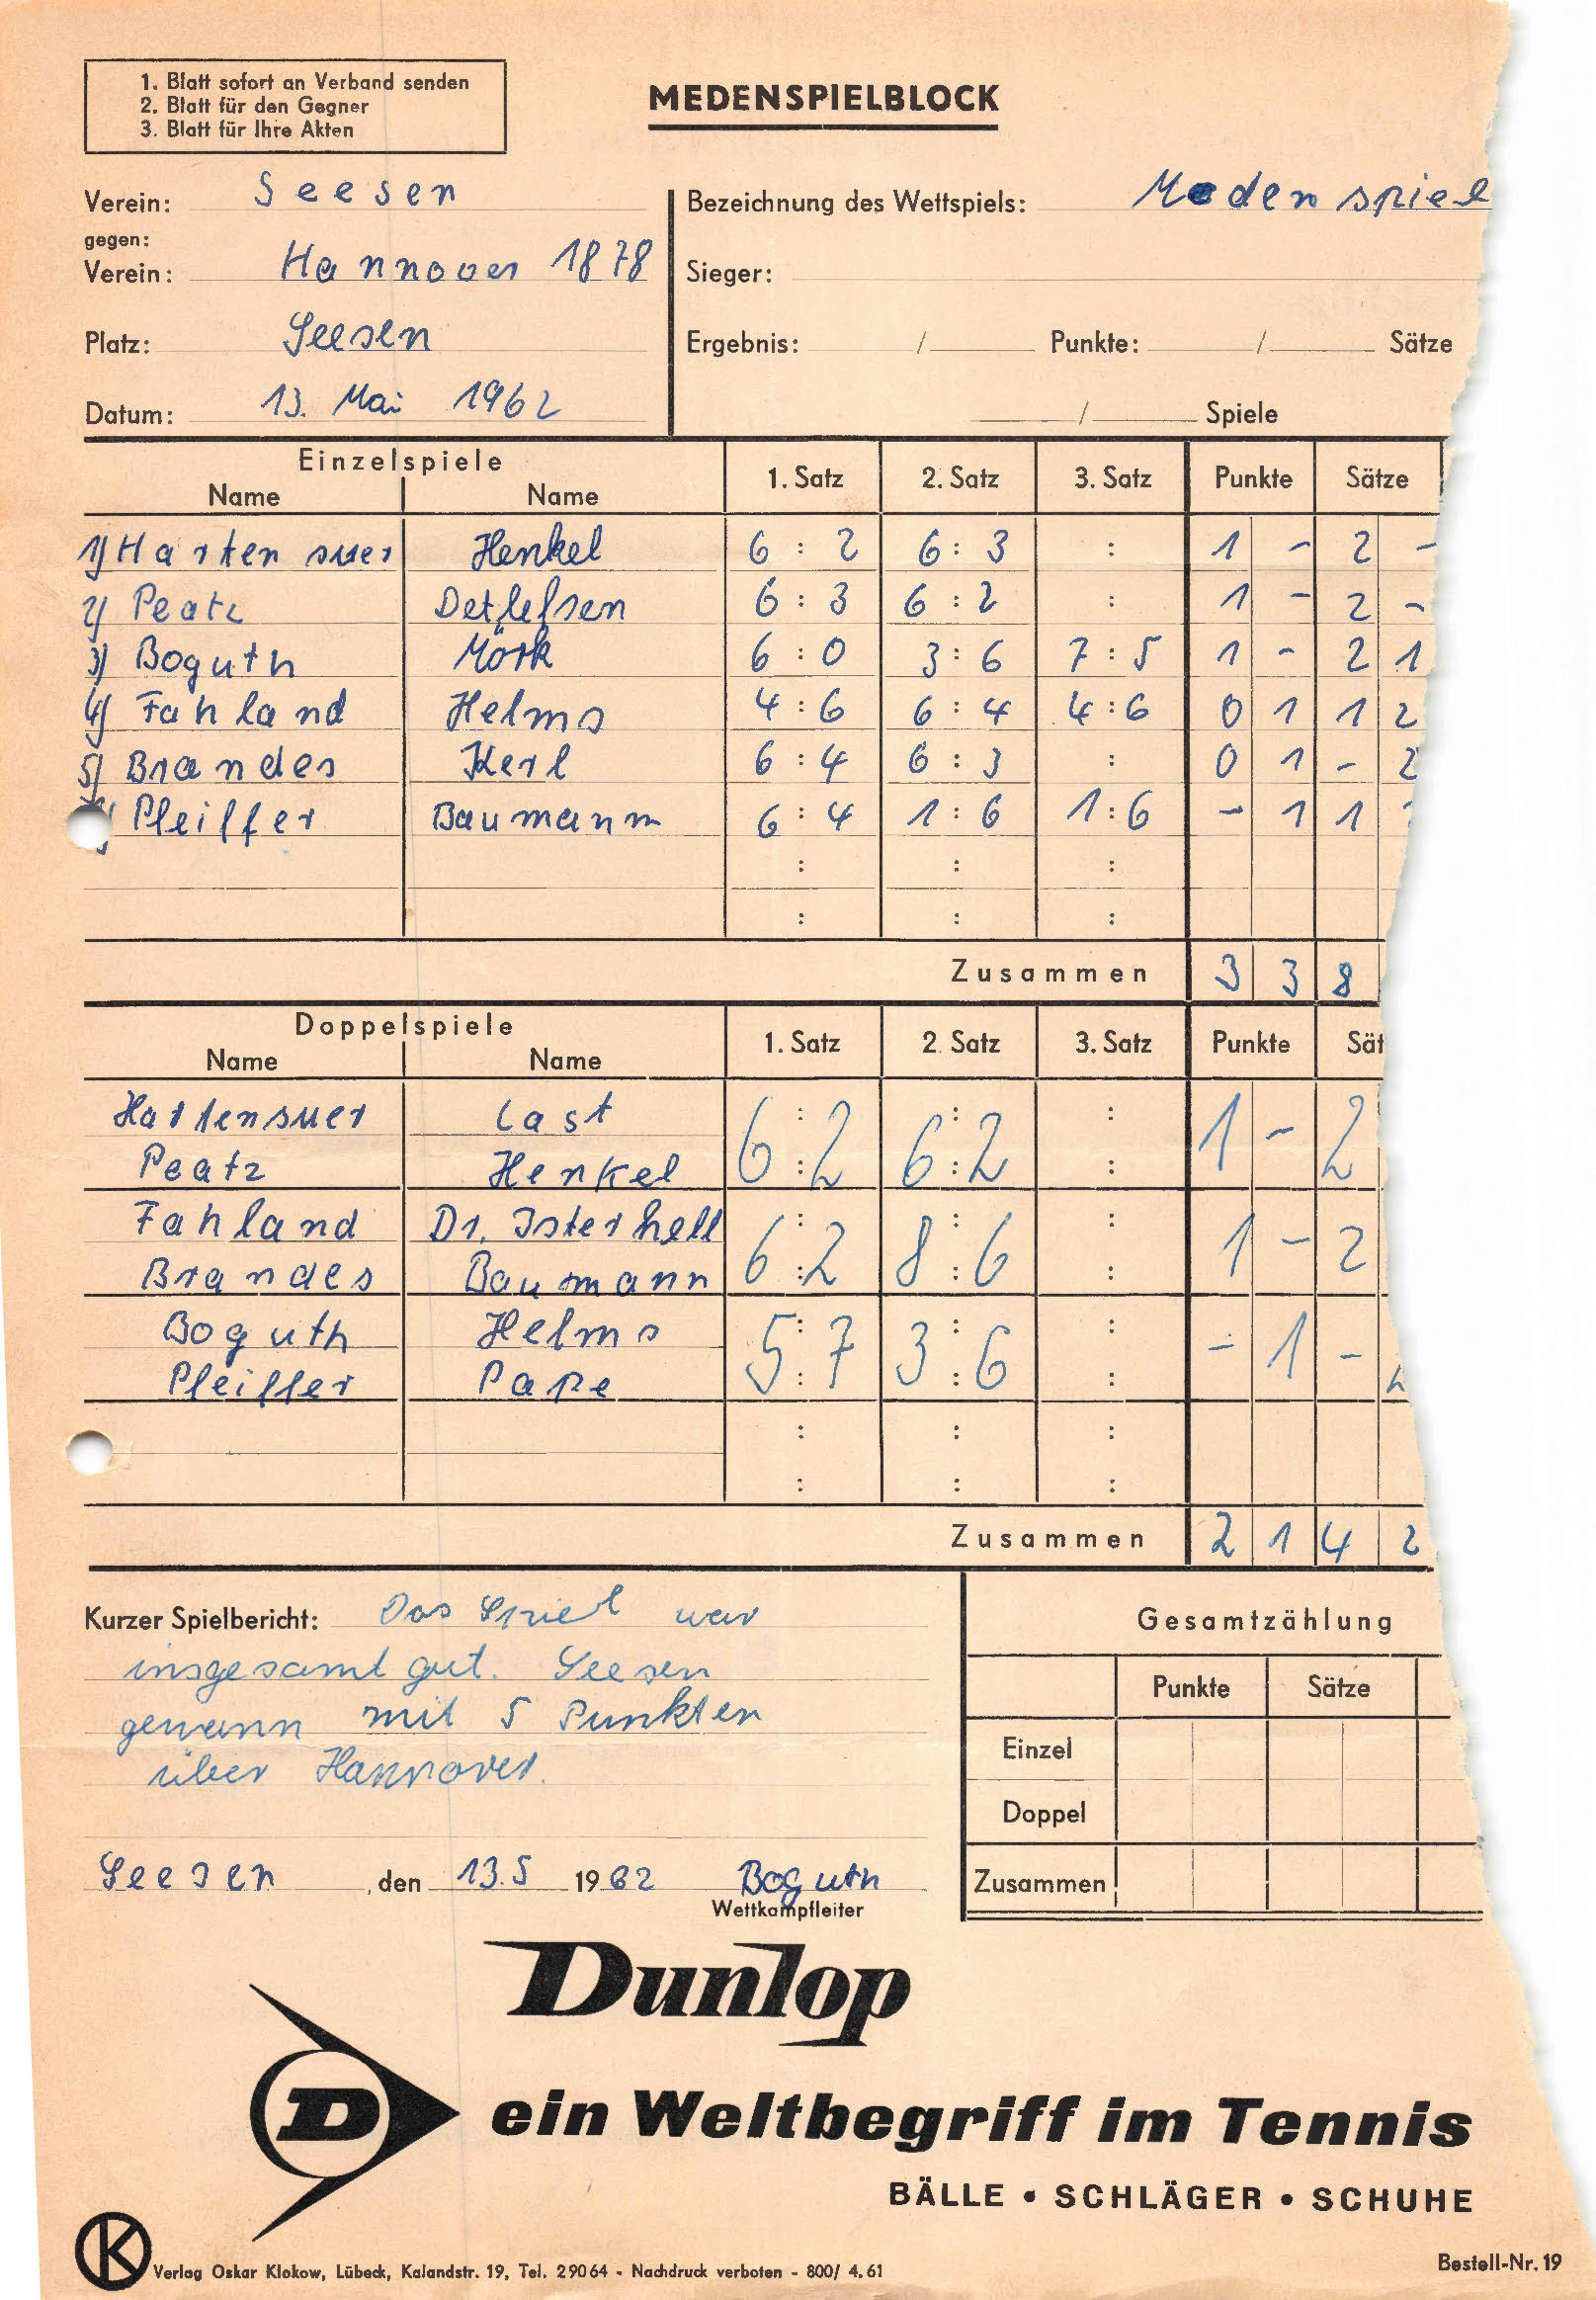 1. Blatt sofort an Verband senden
2. Blatt für den Gegner
3. Blatt für Ihre Akten
MEDENSPIELBLOCK
Verein: Seesen
gegen:
Verein: Hannover 1878
Platz: Seesen
Datum: 13. Mai 1962
Bezeichnung des Wettspiels: Medenspiel
Sieger:
Ergebnis: / Punkte: / Sätze
/ Spiele
Einzelspiele
Name Name 1. Satz 2. Satz 3. Satz Punkte Sätze
1) Hartensuer Henkel 6 : 2 6 : 3 : 1 - 2 -
2) Peatz Detlefsen 6 : 3 6 : 2 : 1 - 2 -
3) Boguth Mörk 6 : 0 3 : 6 7 : 5 1 - 2 1
4) Fahland Helms 4 : 6 6 : 4 4 : 6 0 1 1 2
5) Brandes Kerl 6 : 4 6 : 3 : 0 1 - 2
Pfeiffer Baumann 6 : 4 1 : 6 1 : 6 - 1 1
: : :
: : :
Zusammen 3 3 8
Doppelspiele
Name Name 1. Satz 2. Satz 3. Satz Punkte Sät
Hartensuer Last : : :
Peatz Henkel 6 : 2 6 : 2 : 1 - 2
Fahland Dr. Isterhell : : :
Brandes Baumann 6 : 2 8 : 6 : 1 - 2
Boguth Helms : : :
Pfeiffer Pape 5 : 7 3 : 6 : - 1 -
: : :
: : :
Zusammen 2 1 4 2
Kurzer Spielbericht: Das Spiel war
insgesamt gut. Seesen
gewann mit 5 Punkten
über Hannover.
Seesen, den 13.5 1962 Boguth
Wettkampfleiter
Gesamtzählung
Punkte Sätze
Einzel
Doppel
Zusammen
Dunlop
D
ein Weltbegriff im Tennis
BÄLLE • SCHLÄGER • SCHUHE
K
Verlag Oskar Klokow, Lübeck, Kalandstr. 19, Tel. 29064 - Nachdruck verboten - 800/ 4.61
Bestell-Nr. 19